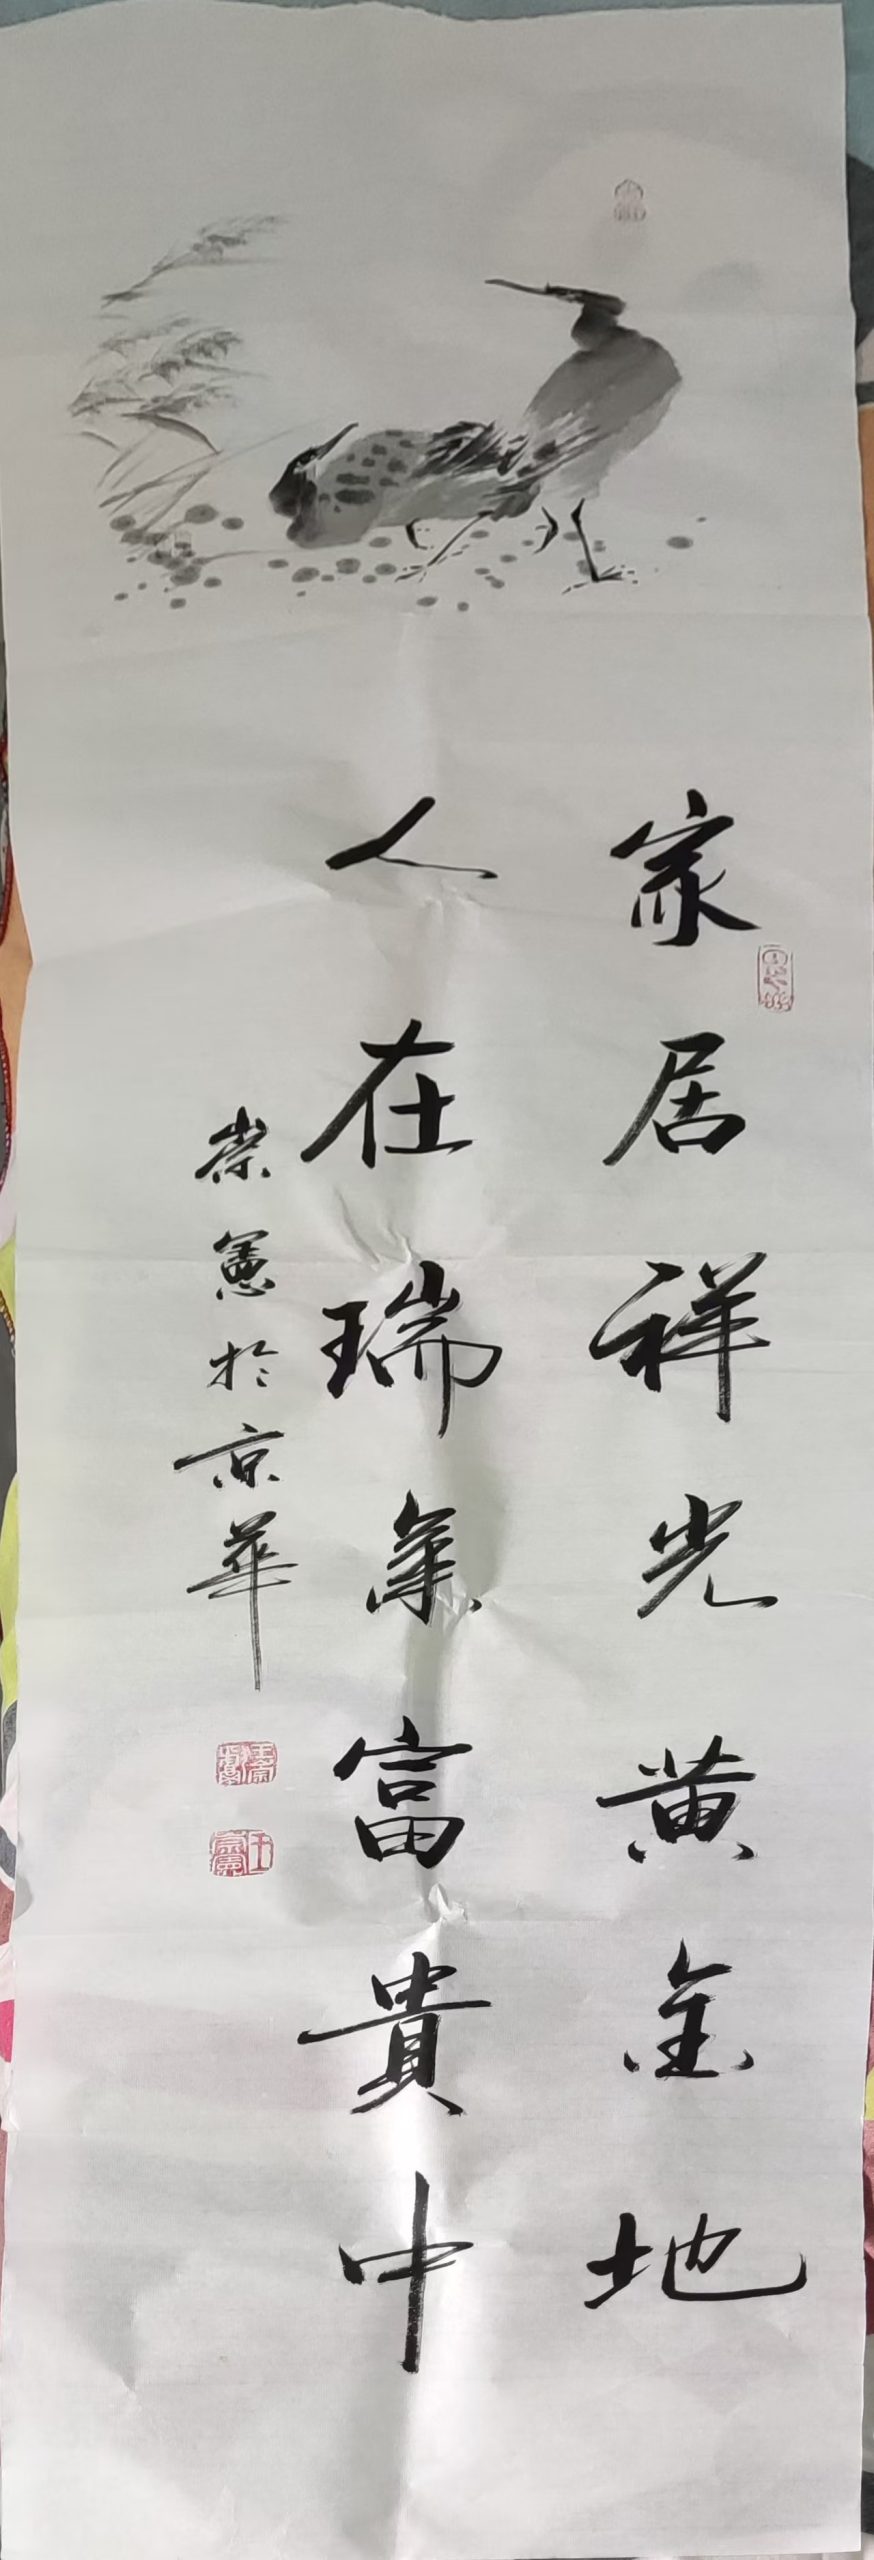 家居祥光黄金地
人在瑞氣富貴中
崇憲於京華